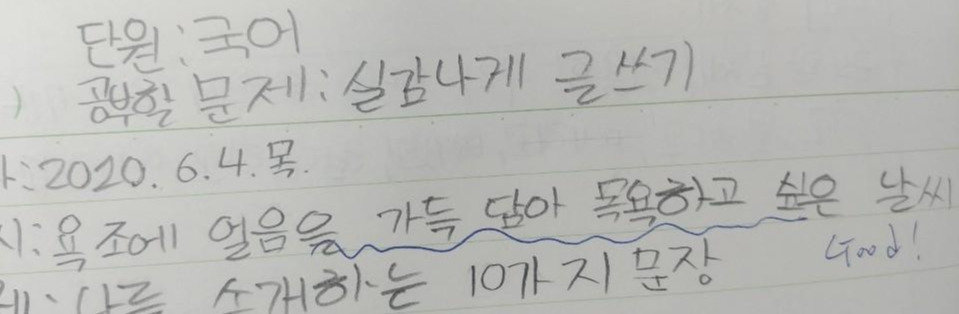 단원:국어
공부할 문제:실감나게 글쓰기
:2020. 6.4.목.
:욕조에 얼음을 가득 담아 목욕하고 싶은 날씨
Good!
나를 소개하는 10가지 문장